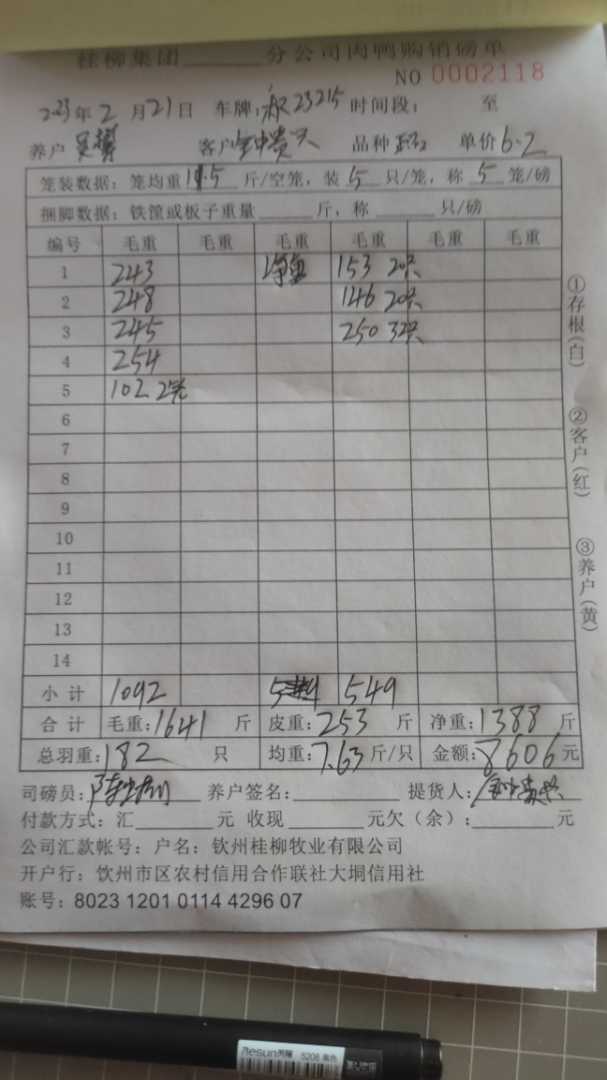 桂柳集团______分公司肉鸭购销磅单
NO 0002118
2023年2月21日 车牌: 23215 时间段: 至
养户 客户 品种 单价6.2
笼装数据: 笼均重11.5斤/空笼, 装5只/笼, 称5笼/磅
捆脚数据: 铁筐或板子重量______斤, 称______只/磅
编号 毛重 毛重 毛重 毛重 毛重 毛重
1 243 净重 153 20只
2 248 146 20只
3 245 250 32只
4 254
5 102
6
7
8
9
10
11
12
13
14
小计 1092 549
合计 毛重:1641 斤 皮重:253 斤 净重:1388 斤
总羽重:182 只 均重:7.63斤/只 金额:8606元
司磅员: 养户签名:______ 提货人:
付款方式: 汇______元 收现______元欠(余):______元
公司汇款帐号: 户名: 钦州桂柳牧业有限公司
开户行: 钦州市区农村信用合作联社大垌信用社
账号: 8023 1201 0114 4296 07
①存根(白)
②客户(红)
③养户(黄)
5208